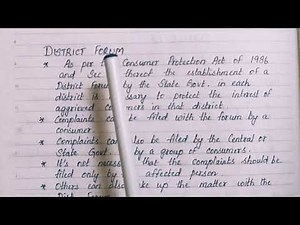 DISTRICT FORUM
* As per Consumer Protection Act of 1986
and Sec thereof the establishment of a
District Forum by the State Govt. in each
district is to protect the interest of
aggrieved in that district.
* Complaints can be filed with the forum by a
consumer.
* Complaints be filed by the Central or
State Govt by a group of consumers.
* It's not necess that the complaints should be
filed only by affected person.
* Others can also up the matter with the